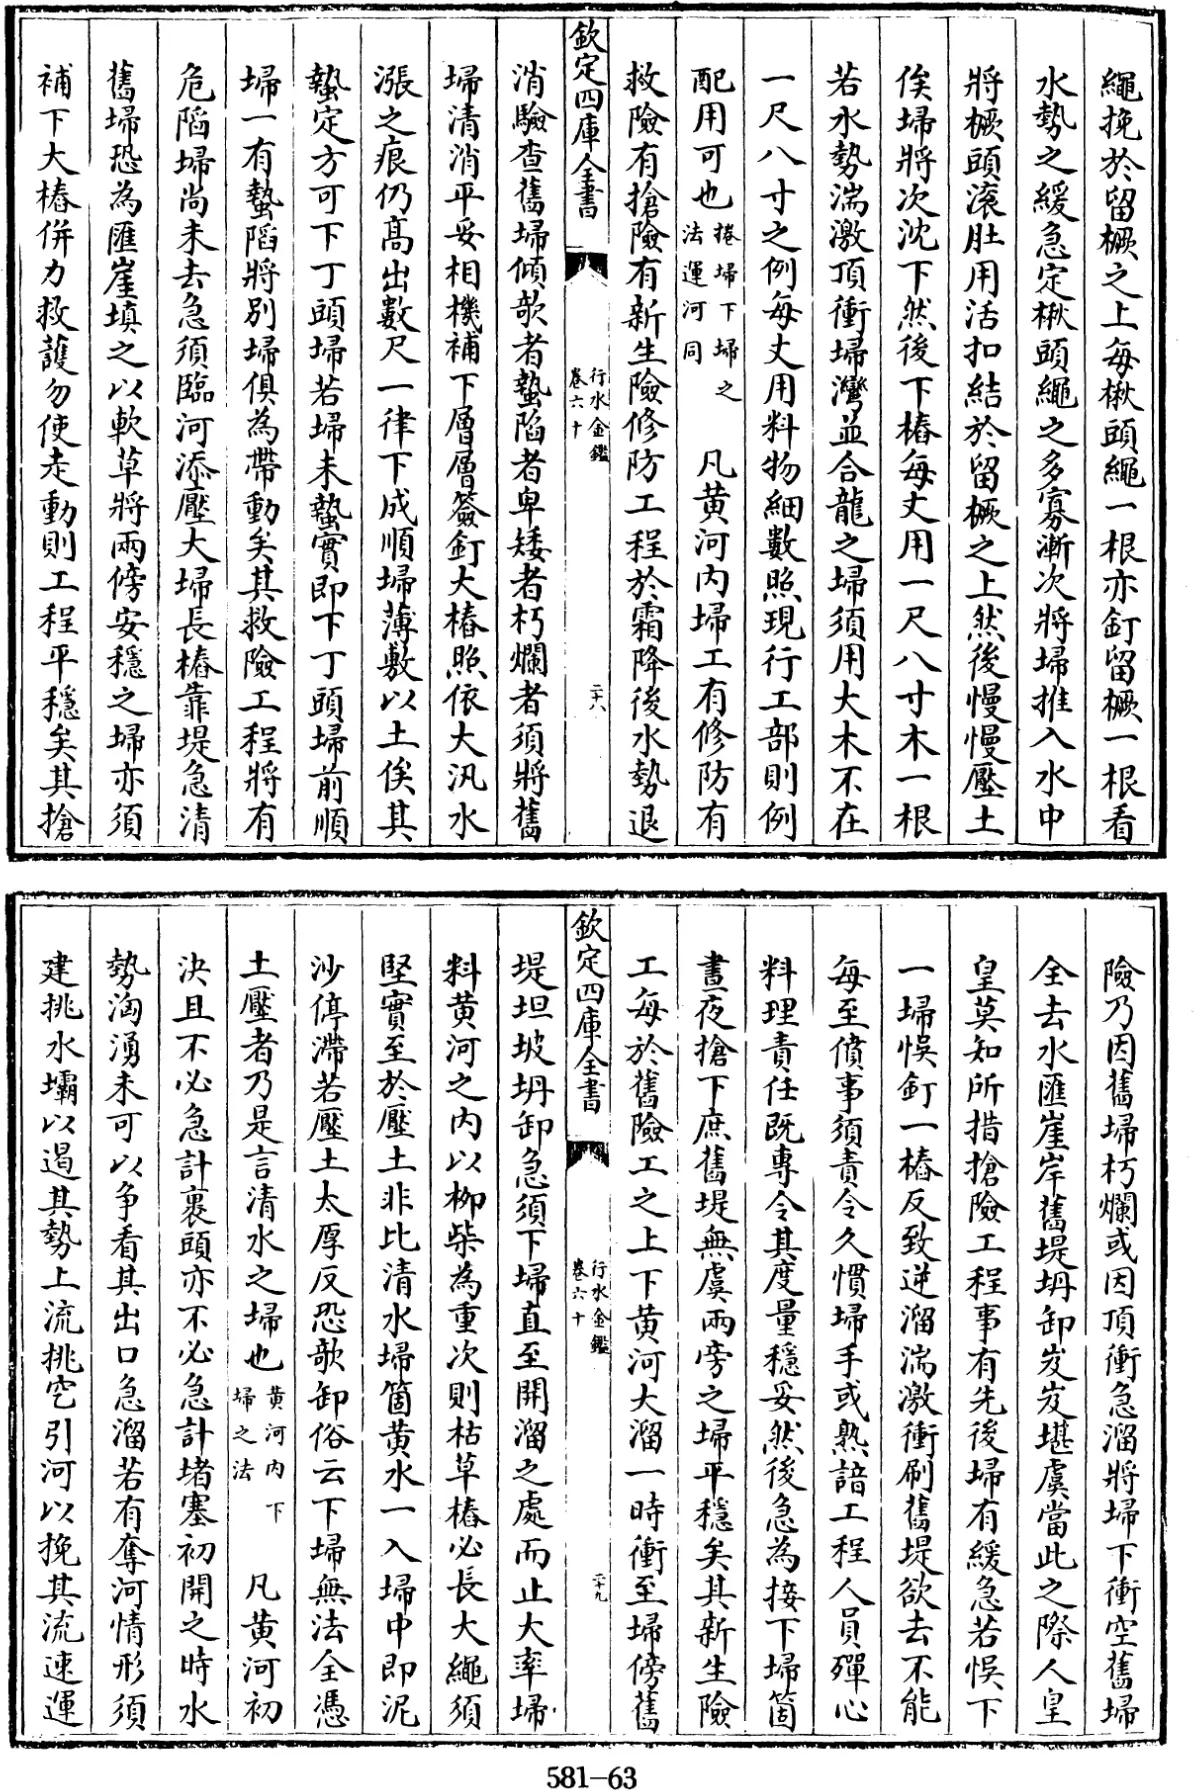 繩挽於留橛之上每楸頭繩一根亦釘留橛一根看
水勢之緩急定楸頭繩之多寡漸次將埽推入水中
將橛頭滾肚用活扣結於留橛之上然後慢慢壓土
俟埽將次沈下然後下樁每丈用一尺八寸木一根
若水勢湍激頂衝埽灣並合龍之埽須用大木不在
一尺八寸之例每丈用料物細數照現行工部則例
配用可也捲埽下埽之法運河同 凡黄河内埽工有修防有
救險有搶險有新生險修防工程於霜降後水勢退
欽定四庫全書 行水金鑑卷六十 二十八
消驗查舊埽傾欹者蟄陷者卑矮者朽爛者須將舊
埽清消平妥相機補下層層簽釘大樁照依大汛水
漲之痕仍高出數尺一律下成順埽薄敷以土俟其
蟄定方可下丁頭埽若埽未蟄實即下丁頭埽前順
埽一有蟄陷將别埽俱為帶動矣其救險工程將有
危陷埽尚未去急須臨河添壓大埽長樁靠堤急清
舊埽恐為匯崖填之以軟草將兩傍安穩之埽亦須
補下大樁併力救護勿使走動則工程平穩矣其搶
險乃因舊埽朽爛或因頂衝急溜將埽下衝空舊埽
全去水匯崖岸舊堤坍卸岌岌堪虞當此之際人皇
皇莫知所措搶險工程事有先後埽有緩急若悞下
一埽悞釘一樁反致逆溜湍激衝刷舊堤欲去不能
每至僨事須責令久慣埽手或熟諳工程人員殫心
料理責任既專令其度量穩妥然後急為接下埽箇
晝夜搶下庶舊堤無虞兩旁之埽平穩矣其新生險
工每於舊險工之上下黄河大溜一時衝至埽傍舊
欽定四庫全書 行水金鑑卷六十 二十九
堤坦坡坍卸急須下埽直至開溜之處而止大率埽
料黄河之内以栁柴為重次則枯草樁必長大繩須
堅實至於壓土非比清水埽箇黄水一入埽中即泥
沙停滯若壓土太厚反恐欹卸俗云下埽無法全憑
土壓者乃是言清水之埽也黄河内下埽之法 凡黄河初
決且不必急計裹頭亦不必急計堵塞初開之時水
勢洶湧未可以争看其出口急溜若有奪河情形須
建挑水壩以遏其勢上流挑空引河以挽其流速運
581-63